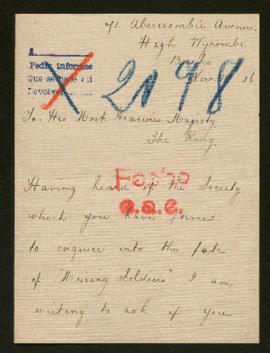 71. Abercrombie Avenue,
High Wycombe.
Bucks
Nov. 16
A
Pedir informes
Que se haga
Devolver
2098
To. His Most Gracious Majesty
The King.
Fecho
a.a.e.
Having heard of the Society
which you have formed
to enquire into the fate
of "Missing Soldiers" I am
writing to ask if you